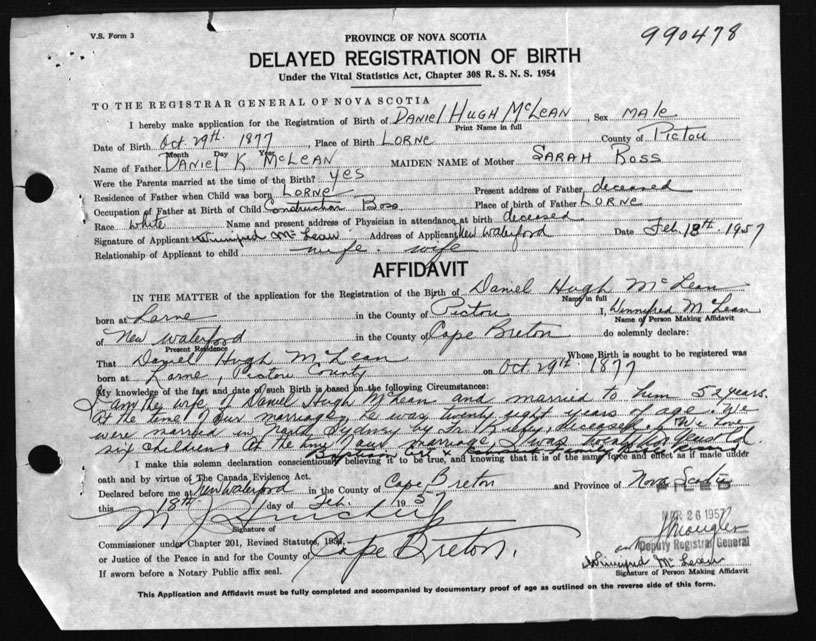 V.S. Form 3
PROVINCE OF NOVA SCOTIA
990478
DELAYED REGISTRATION OF BIRTH
Under the Vital Statistics Act, Chapter 308 R. S. N. S. 1954
TO THE REGISTRAR GENERAL OF NOVA SCOTIA
I hereby make application for the Registration of Birth of DANIEL HUGH McLEAN, Sex male
Print Name in full
Date of Birth Oct. 29th. 1877, Place of Birth LORNE County of Pictou
Month Day Year
Name of Father DANIEL K McLEAN MAIDEN NAME of Mother SARAH ROSS
Were the Parents married at the time of the Birth? yes
Residence of Father when Child was born LORNE Present address of Father deceased
Occupation of Father at Birth of Child Construction Boss Place of birth of Father LORNE
Race white Name and present address of Physician in attendance at birth deceased
Signature of Applicant Winnifred McLean Address of Applicant New Waterford Date Feb. 18th. 1957
Relationship of Applicant to child wife. wife
AFFIDAVIT
IN THE MATTER of the application for the Registration of the Birth of Daniel Hugh McLean
Name in full
born at Lorne in the County of Pictou I, Winnifred McLean
Name of Person Making Affidavit
of New Waterford in the County of Cape Breton do solemnly declare:
Present Residence
That Daniel Hugh McLean Whose Birth is sought to be registered was
born at Lorne, Pictou County on Oct. 29th. 1877
My knowledge of the fact and date of such Birth is based on the following Circumstances:
I am the wife of Daniel Hugh McLean and married to him 52 years.
At the time of our marriage he was twenty eight years of age. We
were married in North Sydney by Fr. deceased. We have
six children. At the time of our marriage, I was years old.
I make this solemn declaration conscientiously believing it to be true, and knowing that it is of the same force and effect as if made under
oath and by virtue of The Canada Evidence Act.
Declared before me at New Waterford in the County of Cape Breton and Province of Nova Scotia
this 18th day of Feb. 1957
FILED
MAR 26 1957
Signature of
Commissioner under Chapter 201, Revised Statutes, 1954,
or Justice of the Peace in and for the County of Cape Breton.
Deputy Registrar General
Winnifred McLean
If sworn before a Notary Public affix seal.
Signature of Person Making Affidavit
This Application and Affidavit must be fully completed and accompanied by documentary proof of age as outlined on the reverse side of this form.